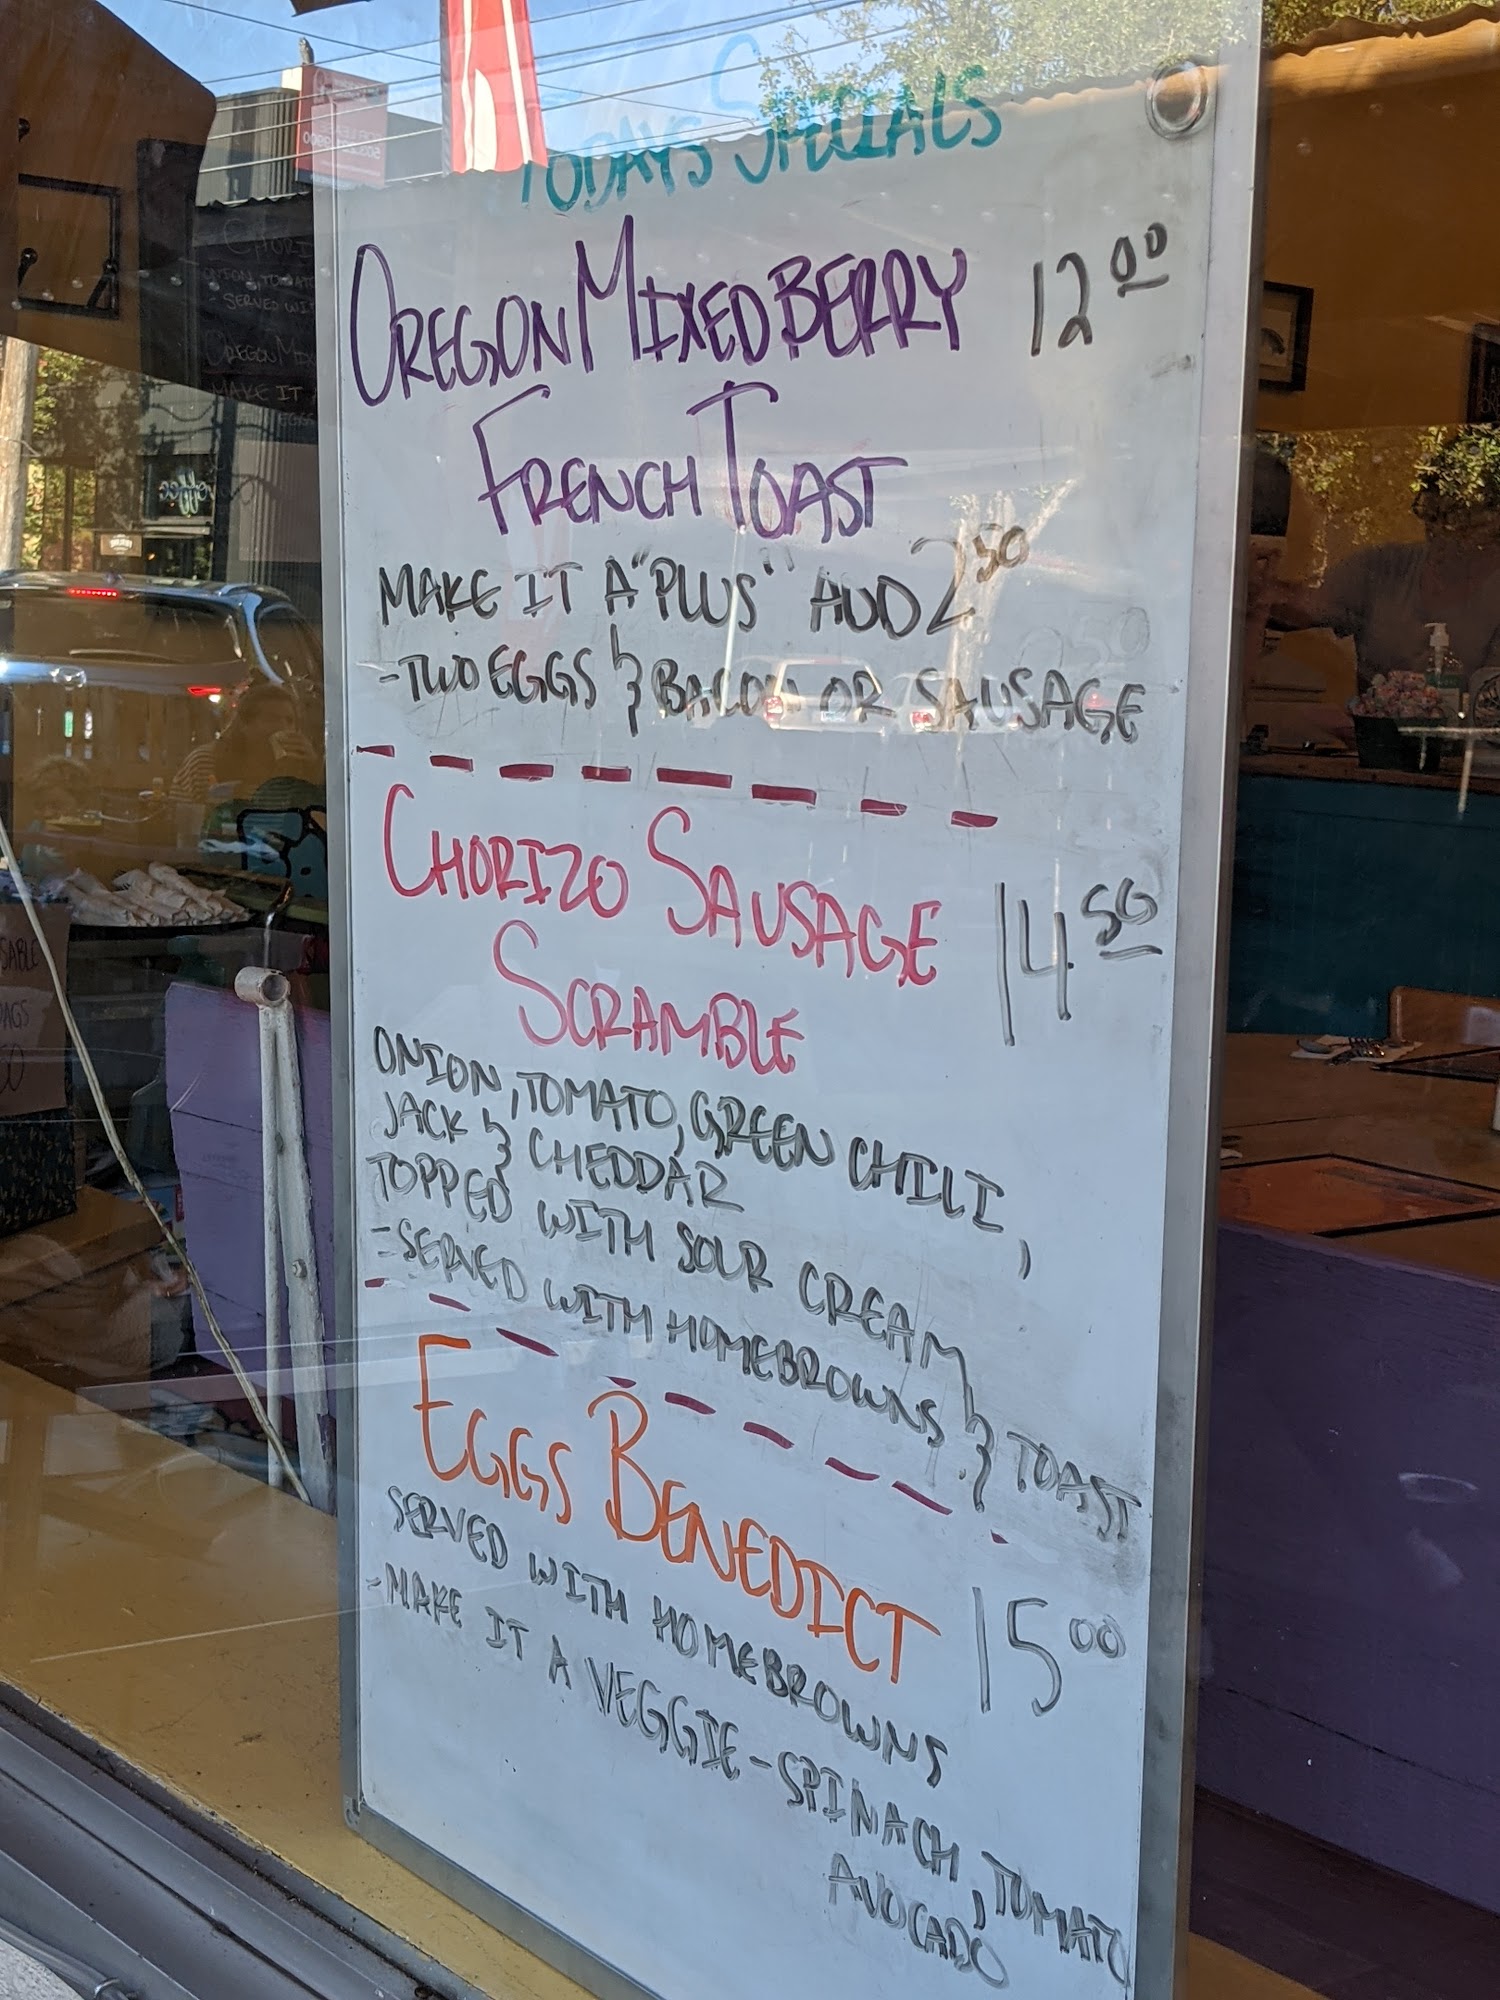 TODAYS SPECIALS
OREGON MIXED BERRY 12 00
FRENCH TOAST
MAKE IT A "PLUS" ADD 2 50
-TWO EGGS & BACON OR SAUSAGE
CHORIZO SAUSAGE 14 50
SCRAMBLE
ONION, TOMATO, GREEN CHILI,
JACK & CHEDDAR
TOPPED WITH SOUR CREAM
-SERVED WITH HOMEBROWNS & TOAST
EGGS BENEDICT 15 00
SERVED WITH HOMEBROWNS
-MAKE IT A VEGGIE-SPINACH, TOMATO
AVOCADO